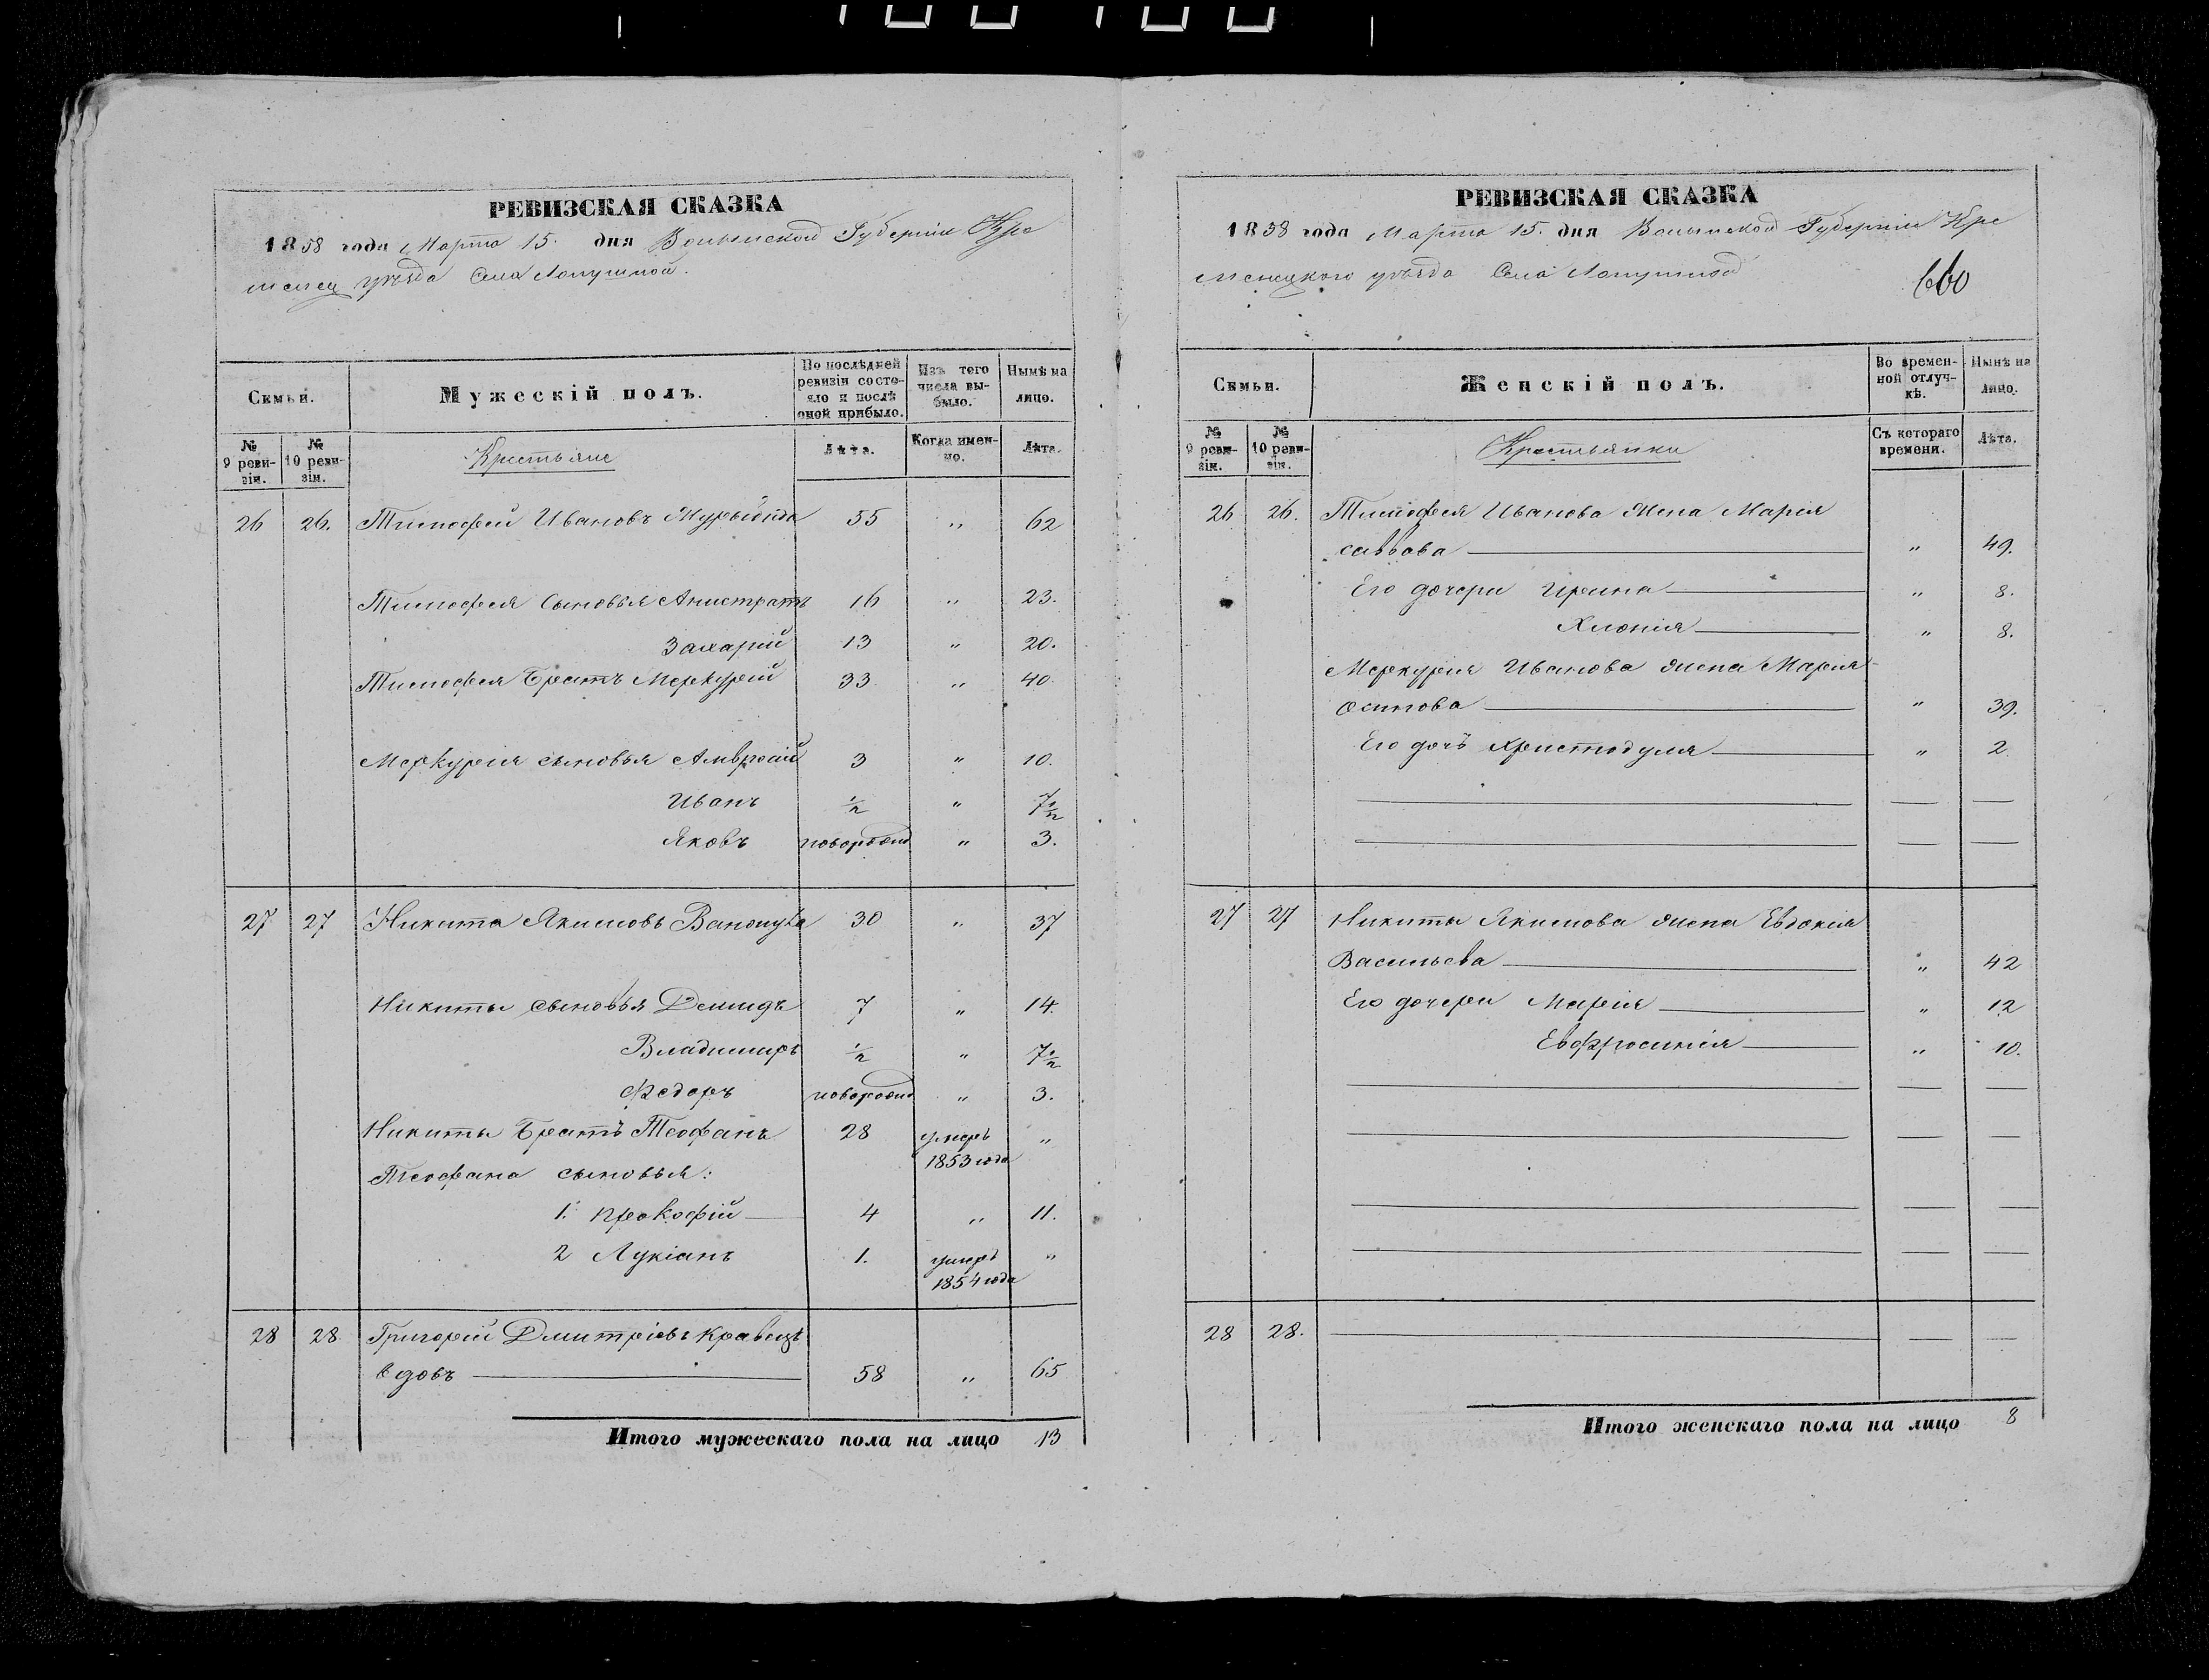 РЕВИЗСКАЯ СКАЗКА
1858 года Марта 15. дня Волынской Губерніи Кре
менец уѣзда Села Лопушной.
Семьи.
Мужескій полъ.
По послѣдней ревизіи состояло и послѣ оной прибыло.
Изъ того числа выбыло.
Нынѣ на лицо.
№ 9 ревизіи.
№ 10 ревизіи.
Крестьяне
Лѣта.
Когда именно.
Лѣта.
26 26. Тимофей Ивановъ 55 „ 62
Тимофея Сыновья Анистратъ 16 „ 23.
Захарій 13 „ 20.
Тимофея Братъ Меркурій 33 „ 40.
Меркурія сыновья Амвросій 3 „ 10.
Иванъ ½ „ 7½
Яковъ новорожд „ 3.
27 27 Никита Якимовъ 30 „ 37
Никиты сыновья Демидъ 7 „ 14.
Владимиръ ½ „ 7½
Федоръ новорожд „ 3.
Никиты Братъ Теофанъ 28 умеръ „
1853 года
Теофана сыновья:
1. Прокофій 4 „ 11.
2 Лукіанъ 1. умеръ „
1854 года
28 28. Григорій Дмитріевъ Кравецъ
вдовъ 58 „ 65
Итого мужескаго пола на лицо 13
РЕВИЗСКАЯ СКАЗКА
1858 года Марта 15. дня Волынской Губерніи Кре
менецкого уѣзда Села Лопушной
660
Семьи.
Женскій полъ.
Во временной отлучкѣ.
Нынѣ на лицо.
№ 9 ревизіи.
№ 10 ревизіи.
Крестьянки
Съ котораго времени.
Лѣта.
26 26. Тимофея Иванова Жена Марія
саввова „ 49.
Его дочери Ирина „ 8.
Хионія „ 8.
Меркурія Иванова жена Марія
Осипова „ 39.
Его дочь Христодуля „ 2
27 27 Никиты Якимова жена Евдокія
Васильева „ 42
Его дочери Марія „ 12
Евфросинія „ 10.
28 28.
Итого женскаго пола на лицо 8